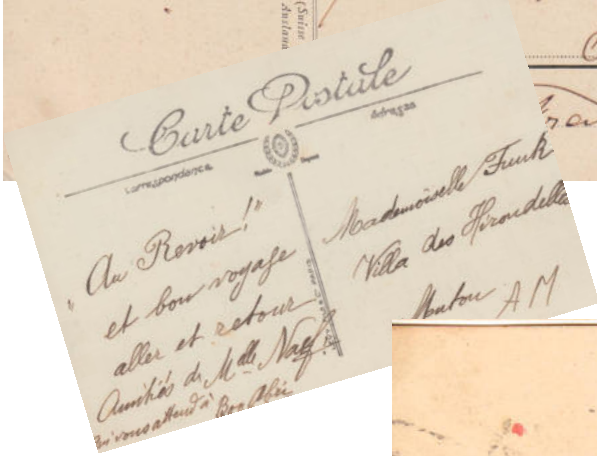 (Suisse
Carte Postale
Correspondance
Adresse
"Au Revoir!"
et bon voyage
aller et retour
Amitiés de Mdlle Naef
vous attend à Bon Abri
Mademoiselle Funk
Villa des Hirondelles
Menton AM